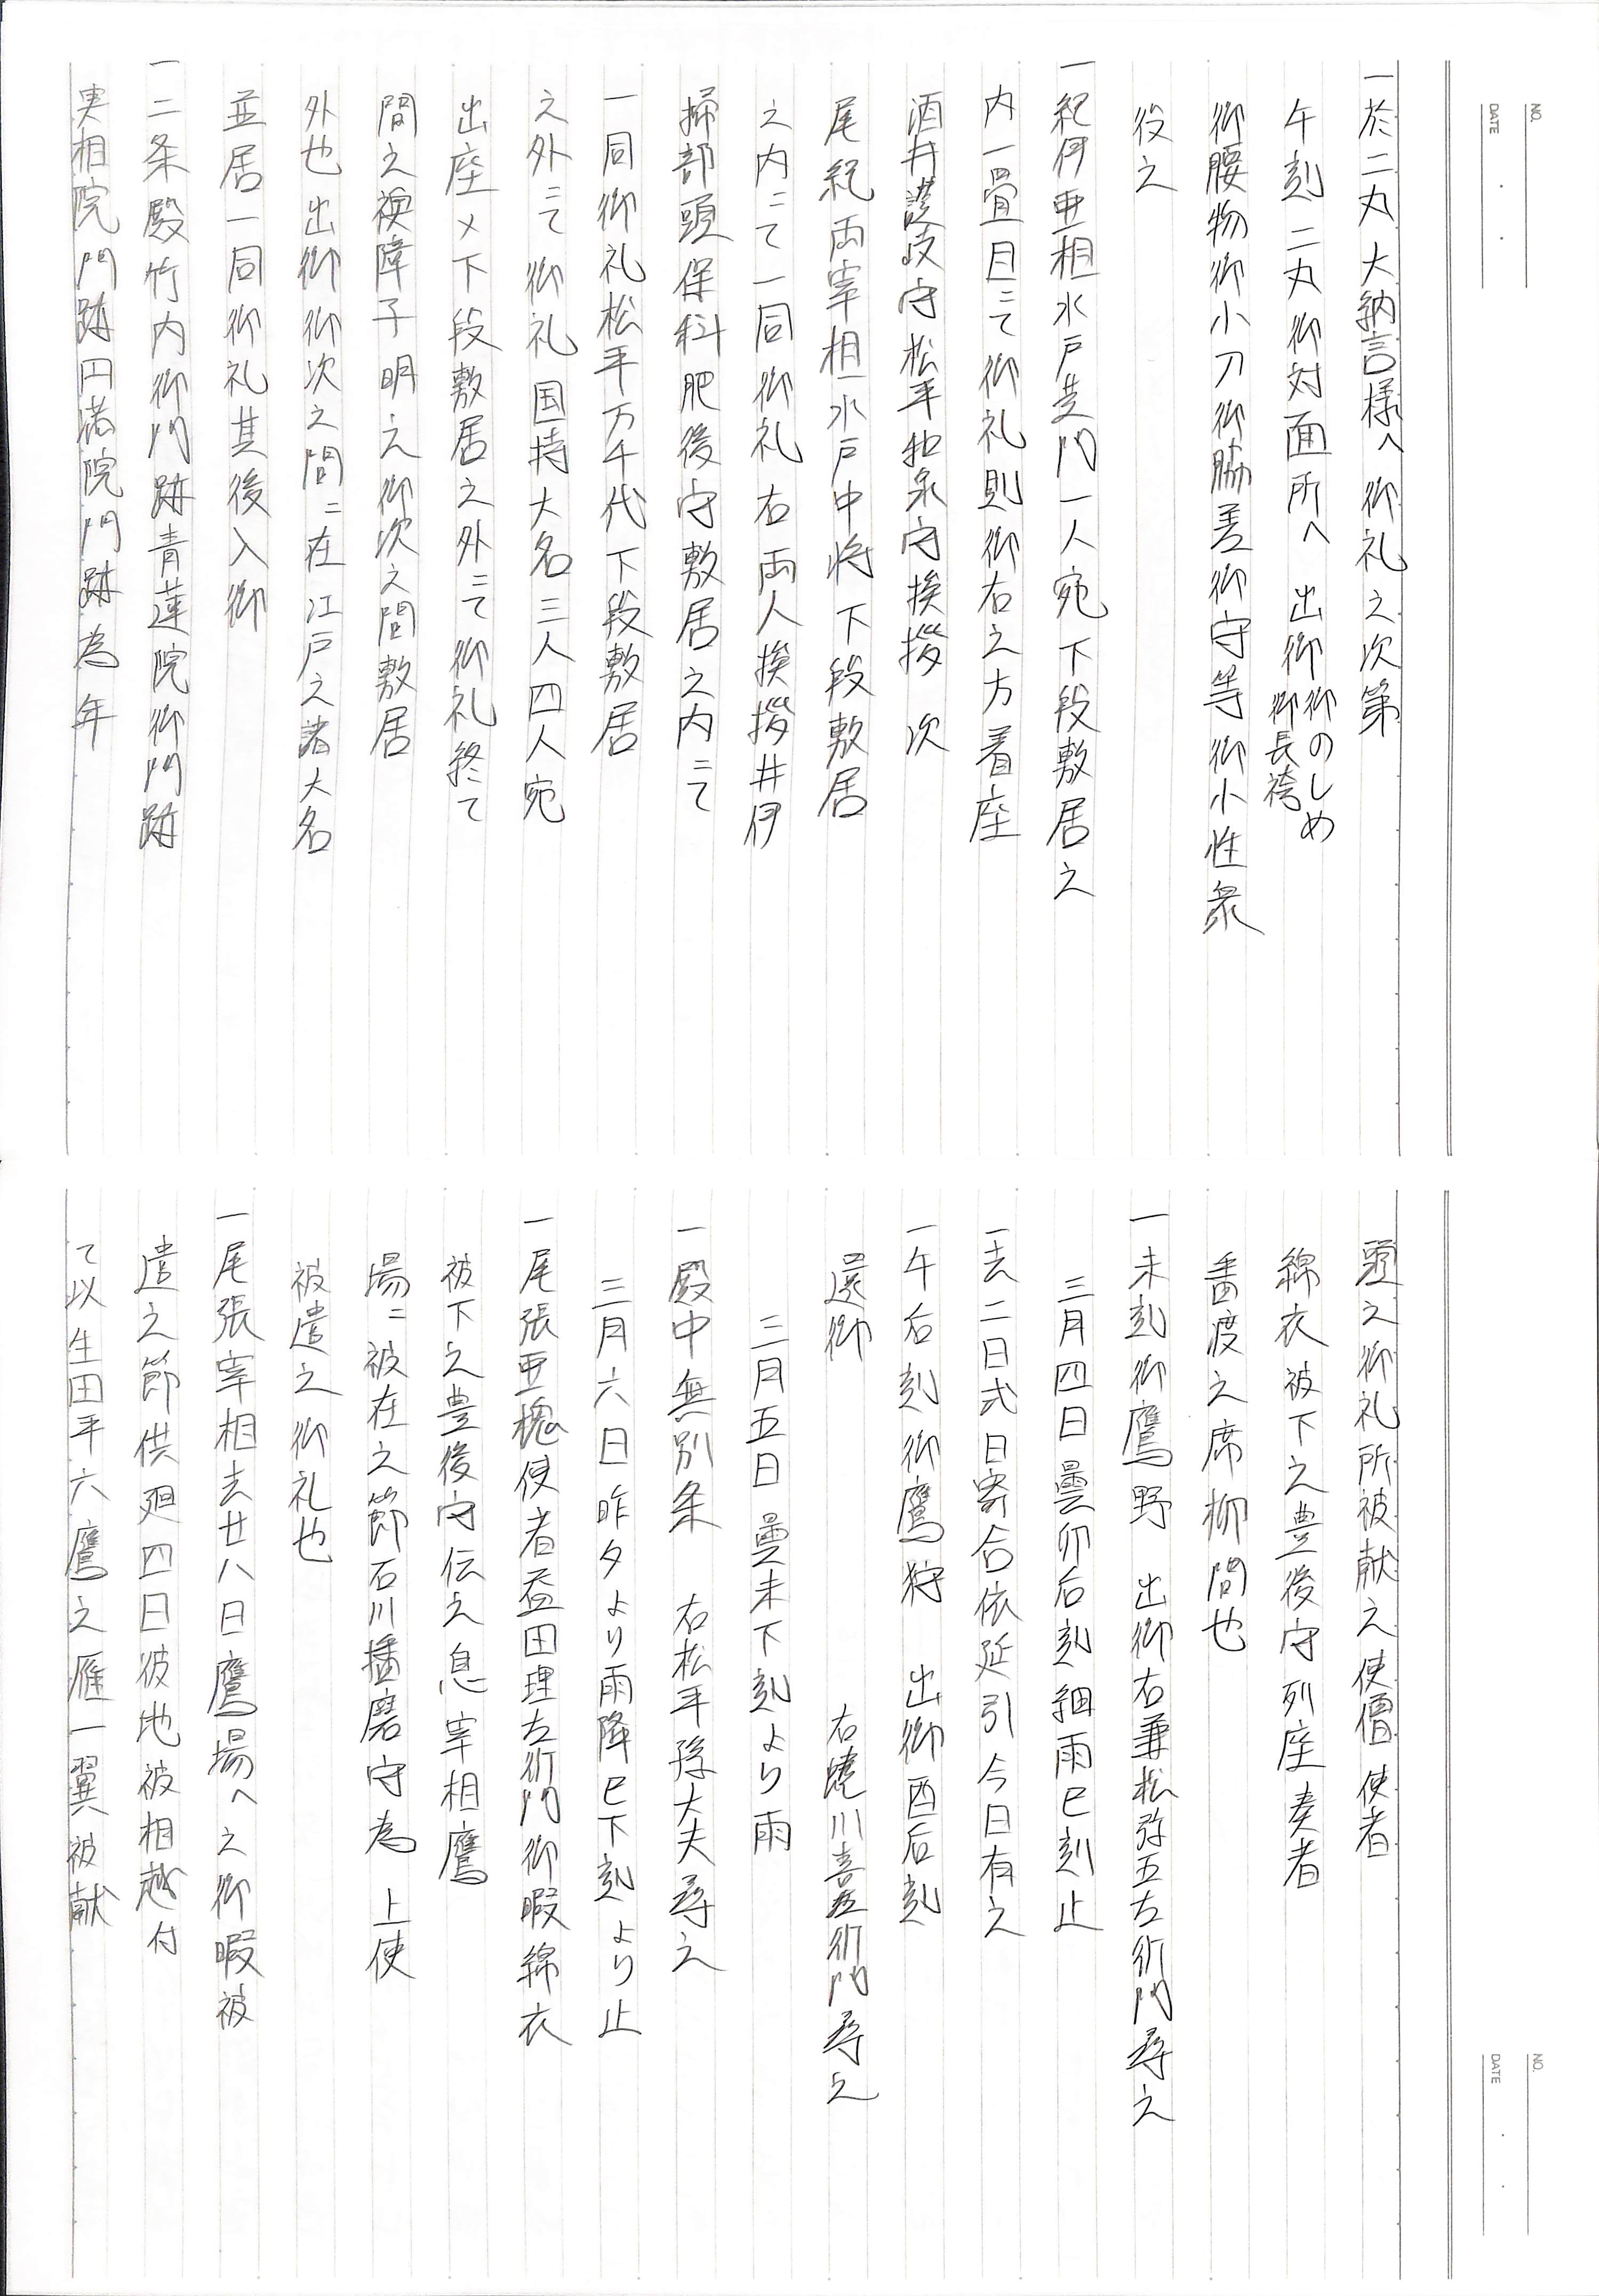 NO.
DATE
一於二丸 大納言様へ御礼之次第
午刻 二丸御対面所へ 出御 御のしめ 御長袴
御腰物御小刀御脇差御守等御小性衆
役之
一紀伊亜相水戸黄門一人宛下段敷居之
内一畳目ニて御礼則御右之方着座
酒井讃岐守松平和泉守挨拶 次
尾紀両宰相水戸中将下段敷居
之内ニて一同御礼右両人挨拶井伊
掃部頭保科肥後守敷居之内ニて
一同御礼松平万千代下段敷居
之外ニて御礼国持大名三人四人宛
出座〆下段敷居之外ニて御礼終て
間之襖障子明之御次之間敷居
外也出御御次之間ニ在江戸之諸大名
並居一同御礼其後入御
一二条殿竹内御門跡青蓮院御門跡
実相院門跡円満院門跡為年
NO.
DATE
頭之御礼所被献之使僧使者
綿衣被下之豊後守列座奏者
番渡之席柳間也
一未刻御鷹野 出御右兼松弥五左衛門尋之
三月四日曇卯后刻細雨巳刻止
一去二日式日寄合依延引今日有之
一午后刻御鷹狩 出御酉后刻
還御 右蜷川喜左衛門尋之
三月五日曇未下刻より雨
一殿中無別条 右松平孫大夫尋之
三月六日昨夕より雨降巳下刻より止
一尾張亜槐使者益田理左衛門御暇綿衣
被下之豊後守伝之息宰相鷹
場ニ被在之節石川播磨守為 上使
被遣之御礼也
一尾張宰相去廿八日鷹場へ之御暇被
遣之節供廻四日彼地被相越付
て以生田平六鷹之雁一翼被献